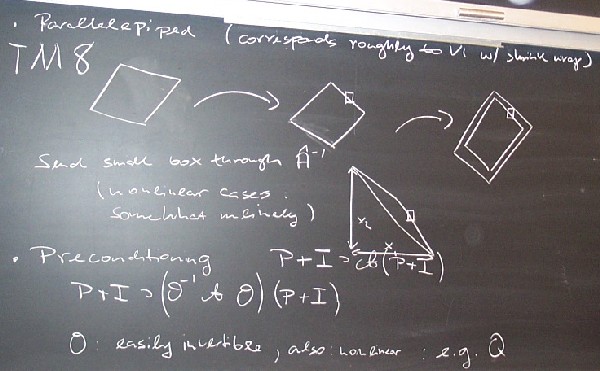 • Parallelepiped (corresponds roughly to Vi w/ shrink wrap)
TM 8
Send small box through Â⁻¹
(nonlinear cases:
somewhat unlikely)
x₂
x₁
• Preconditioning P+I = A(P+I)
P+I = (O⁻¹ A O)(P+I)
O: easily invertible, also nonlinear: e.g. Q